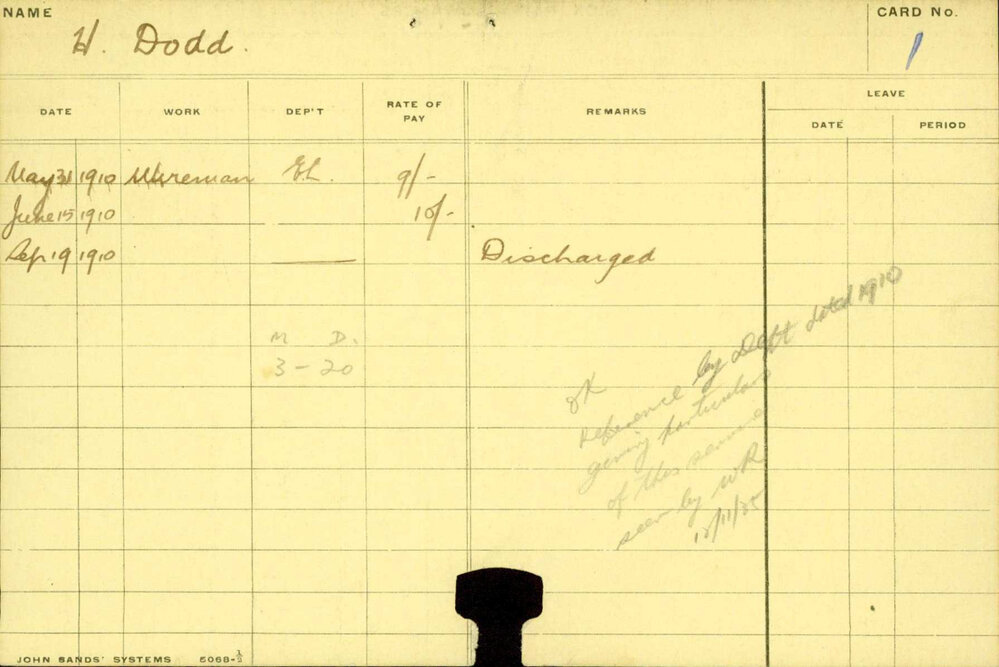 NAME
H. Dodd.
CARD No.
1
DATE WORK DEP'T RATE OF PAY REMARKS LEAVE
DATE PERIOD
May 31 1910 Wireman E.L. 9/-
June 15 1910 10/-
Sep 19 1910 —— Discharged
M D.
3 - 20
OK
Reference by Dept dated 1910
giving particulars
of this service
seen by WR
JOHN SANDS' SYSTEMS 5068-½